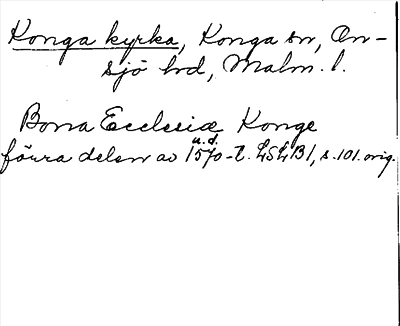 Konga kyrka, Konga sn, On-
sjö hd, Malm. l.
Bona Ecclesiæ Konge
u. å.
förra delen av 1570-t. LSLB1, s. 101. orig.